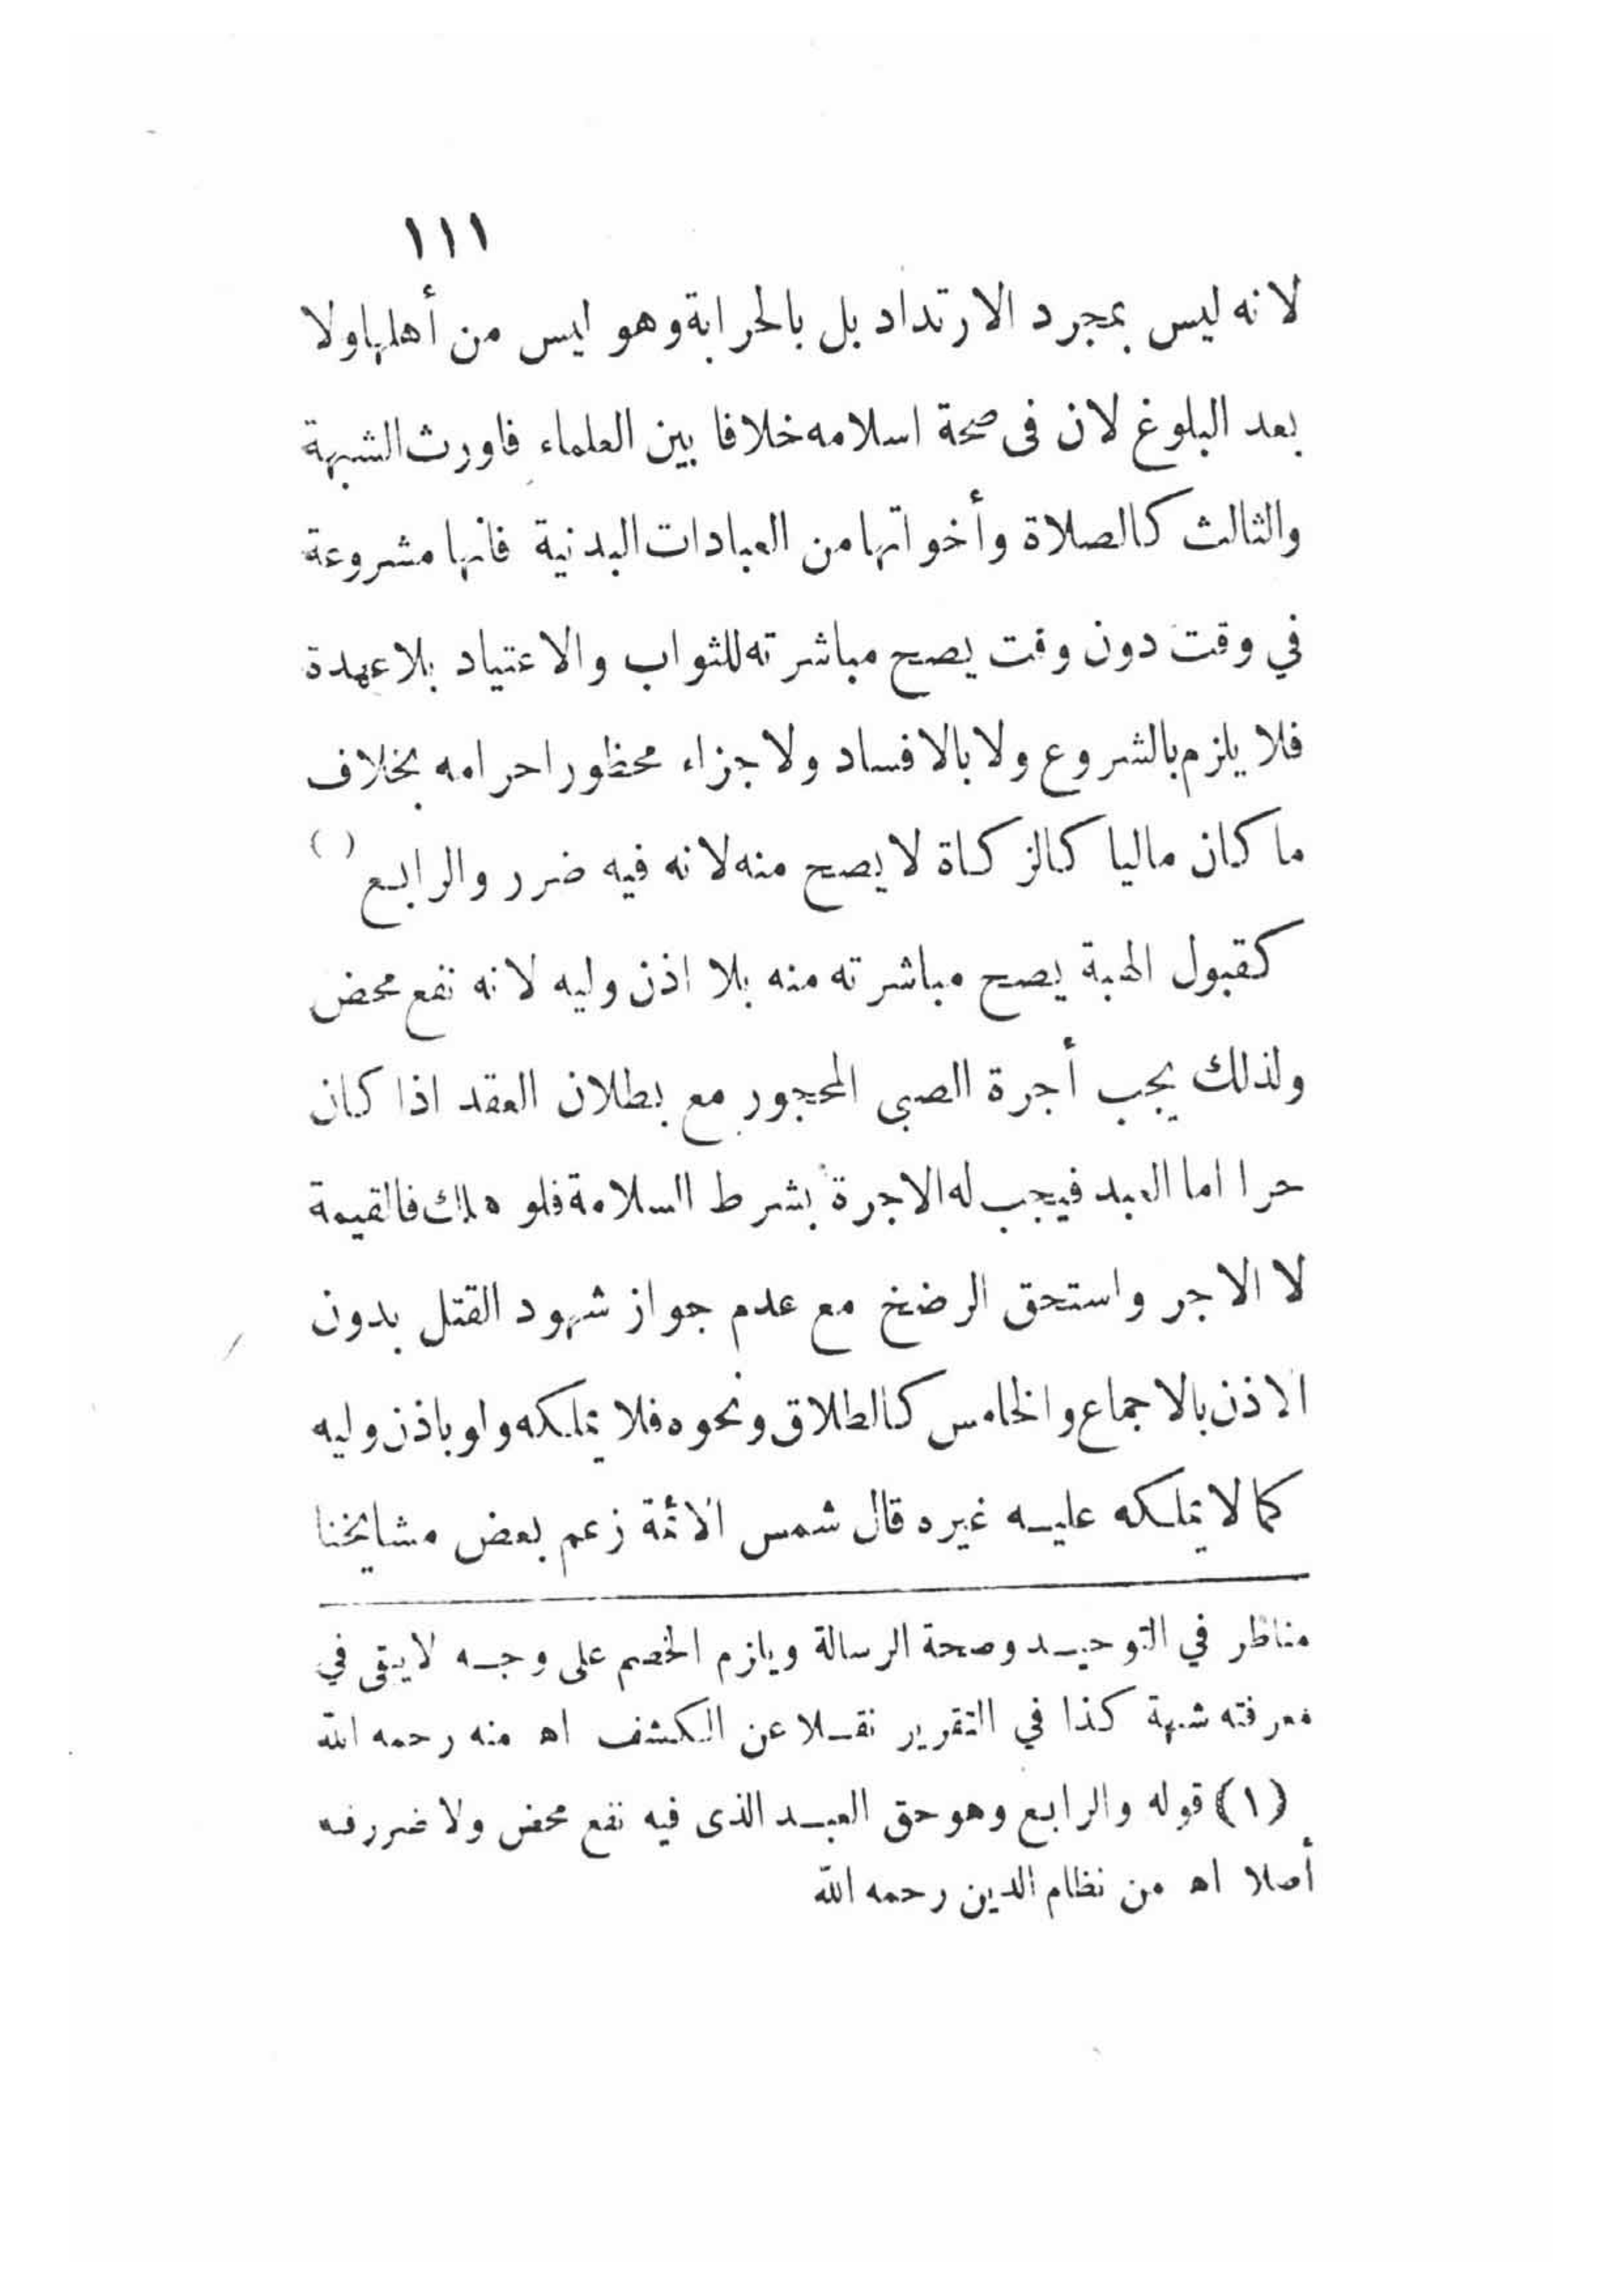 ١١١
لانه ليس بمجرد الارتداد بل بالحرابة وهو ليس من أهلها ولا
بعد البلوغ لان فى صحة اسلامه خلافا بين العلماء فاورث الشبهة
والثالث كالصلاة وأخواتها من العبادات البدنية فانها مشروعة
في وقت دون وقت يصح مباشرته للثواب والاعتياد بلا عهدة
فلا يلزم بالشروع ولا بالافساد ولا جزاء محظور احرامه بخلاف
ما كان ماليا كالزكاة لا يصح منه لانه فيه ضرر والرابع ( )
كقبول الهبة يصح مباشرته منه بلا اذن وليه لانه نفع محض
ولذلك يجب أجرة الصبى المحجور مع بطلان العقد اذا كان
حرا اما العبد فيجب له الاجرة بشرط السلامة فلو هلك فالقيمة
لا الاجر واستحق الرضخ مع عدم جواز شهود القتل بدون
الاذن بالاجماع والخامس كالطلاق ونحوه فلا يملكه ولو باذن وليه
كما لا يملكه عليه غيره قال شمس الائمة زعم بعض مشايخنا
مناظر في التوحيد وصحة الرسالة ويلزم الخصم على وجه لا يبقى في
معرفته شبهة كذا في التقرير نقلا عن الكشف اه منه رحمه الله
(١) قوله والرابع وهو حق العبد الذى فيه نفع محض ولا ضرر فيه
أصلا اه من نظام الدين رحمه الله